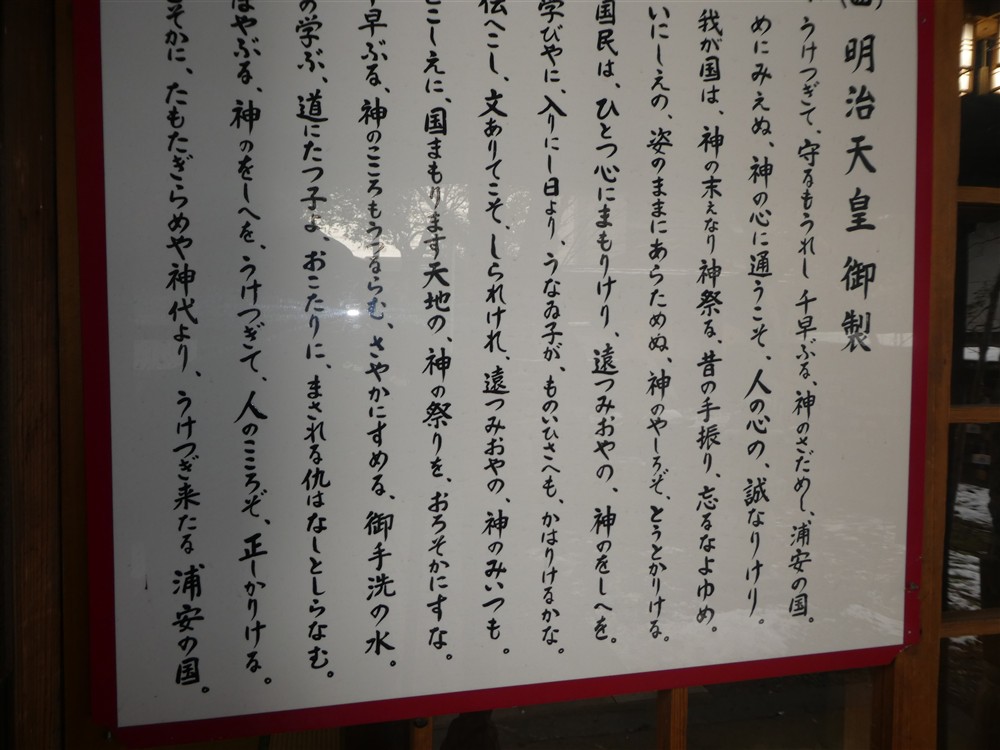 明治天皇御製
うけつぎて、守るもうれし千早ぶる、神のさだめし、浦安の国。
めにみえぬ、神の心に通うこそ、人の心の、誠なりけり。
我が国は、神の末えなり神祭る、昔の手振り、忘るなよゆめ。
いにしえの、姿のままにあらためぬ、神のやしろぞ、とうとかりける。
国民は、ひとつ心にまもりけり、遠つみおやの、神のをしへを。
学びやに、入りにし日より、うなゐ子が、ものいひさへも、かはりけるかな。
伝へこし、文ありてこそ、しられけれ、遠つみおやの、神のみいつも。
とこしえに、国まもります天地の、神の祭りを、おろそかにすな。
千早ぶる、神のこころもうつるらむ、さやかにすめる、御手洗の水。
の学ぶ、道にたつ子よ、おこたりに、まされる仇はなしとしらなむ。
はやぶる、神のをしへを、うけつぎて、人のこころぞ、正しかりける。
そかに、たもたぎらめや神代より、うけつぎ来たる浦安の国。